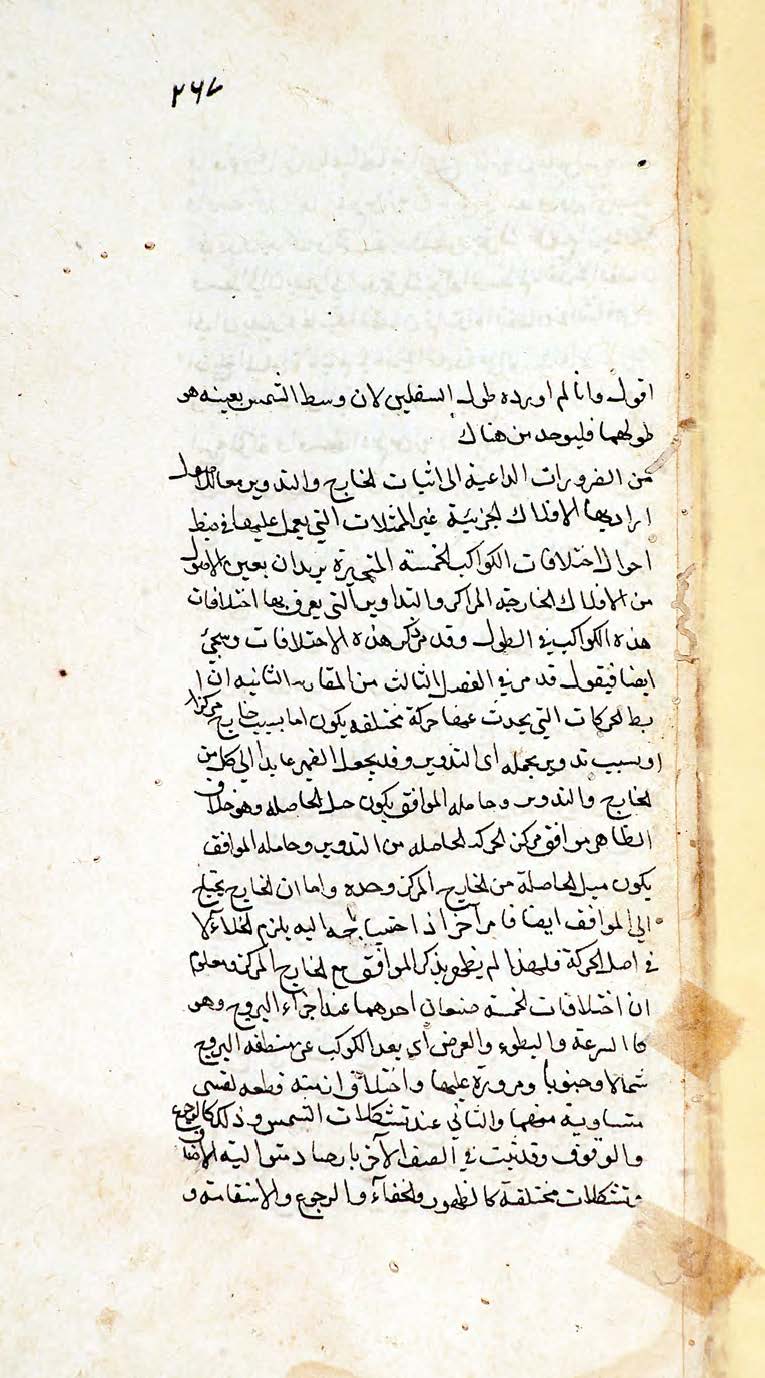 ٢٦٧
اقول وانما لم اورده طول السفليين لان وسط الشمس بعينه هو
طولهما فليوجد من هناك
من الضرورات الداعية الى اثبات الخارج والتدوير معا
ايراد بها الافلاك الجزئية غير الممثلات التي يعمل عليها في ضبط
احوال اختلافات الكواكب الخمسة المتحيرة يريد ان يعين الاصول
من الافلاك الخارجة المراكز والتداوير التي يعرف بها اختلافات
هذه الكواكب في الطول وقد مر ذكر هذه الاختلافات وسيجئ
ايضا فيقول قد مر في الفصل الثالث من المقاله الثانيه ان
بط الحركات التي يحدث عنها حركة مختلفه يكون اما بسبب خارج مركز
او بسبب تدوير يحمله اى التدوير وقد يجعل الضمير عايدا الى كل من
الخارج والتدوير وحامله الموافق يكون الحاصله وهو خلاف
الظاهر موافق مركز الحركه الحاصله من التدوير وحامله الموافق
يكون مثل الحاصلة من الخارج المركز وحده واما ان الخارج يحتاج
الى الموافق ايضا فامر آخر اذ احتياجه اليه يلزم الخلاء لا
في اصل الحركة فلهذا لم يذكر الموافق مع الخارج المركز ومعلوم
ان اختلافات الخمسة صنفان احدهما عند اجزاء البروج وهو
كالسرعة والبطوء والعرض أي بعد الكوكب عن منطقه البروج
شمالا وجنوبا ومروره عليها واختلاف ازمنته قطعه لقسى
متساوية منها والثاني عند تشكلات الشمس وذلك كالرجوع
والوقوف وقد ثبت في الصنف الآخر بارصاد متواليه
وتشكلات مختلفة كالظهور والخفاء والرجوع والاستقامة و